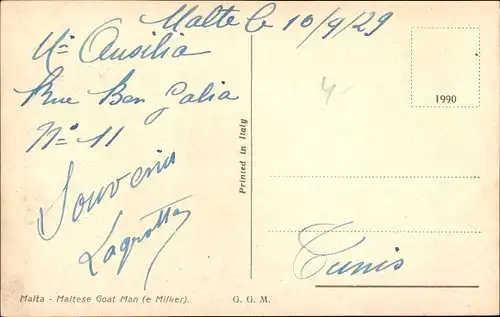 Malte le 10/9/29
Mˡˡᵉ Ausilia
Rue Ben Galia
Nº 11
Souvenir
4-
1990
Printed in Italy
Tunis
Malta - Maltese Goat Man (e Milker).
G. G. M.